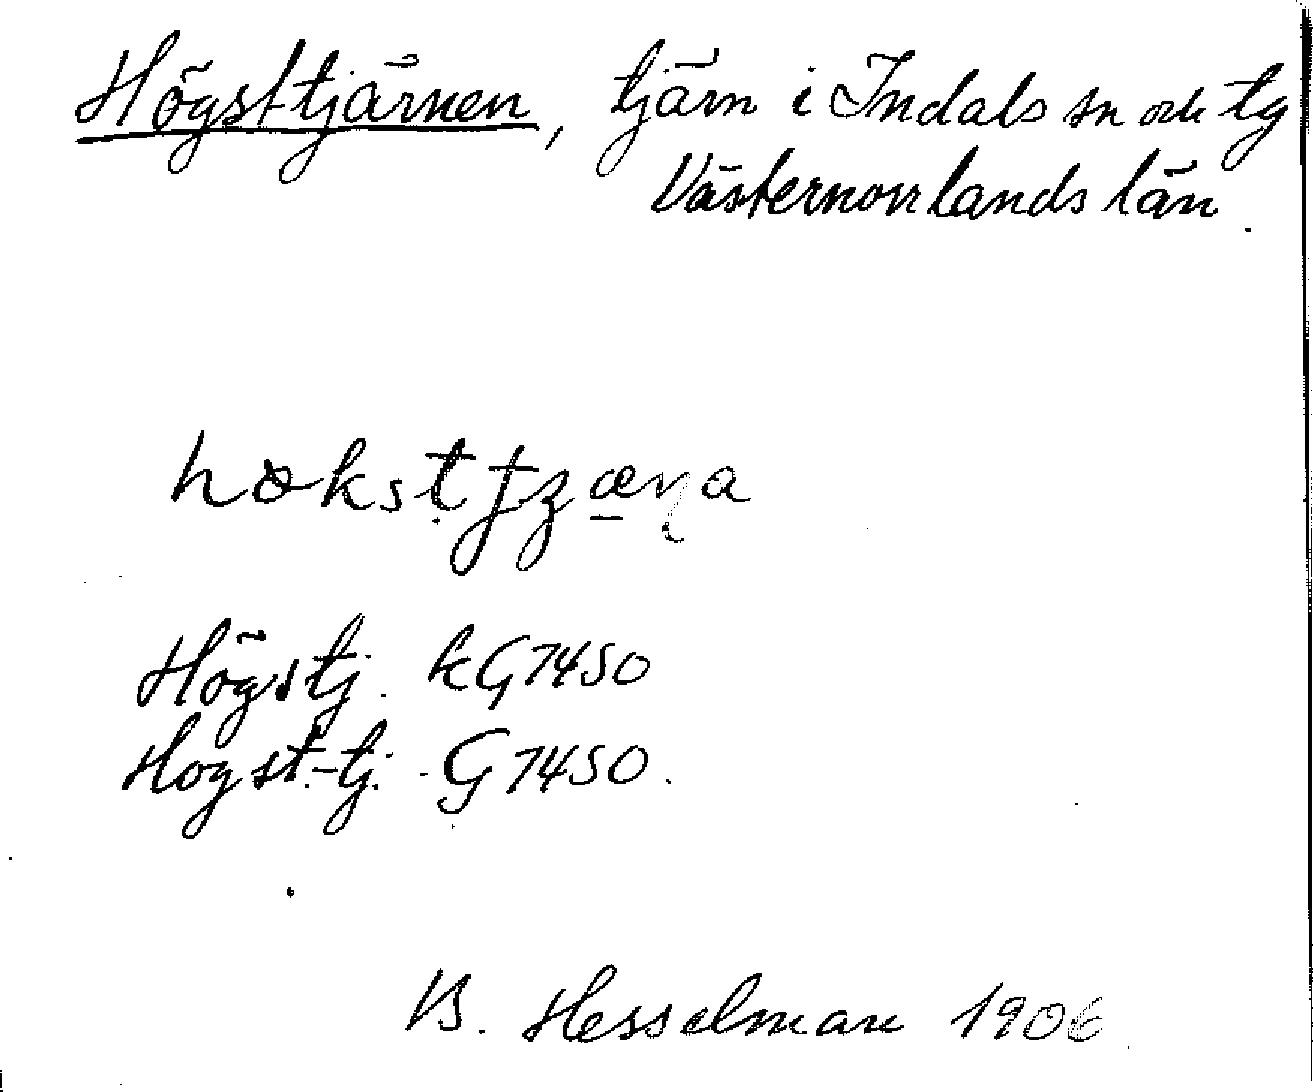 Högsttjärnen, tjärn i Indals sn och tg
Västernorrlands län.
Högstj. kG7450
Hogst-tj. G7450.
B. Hesselman 1906